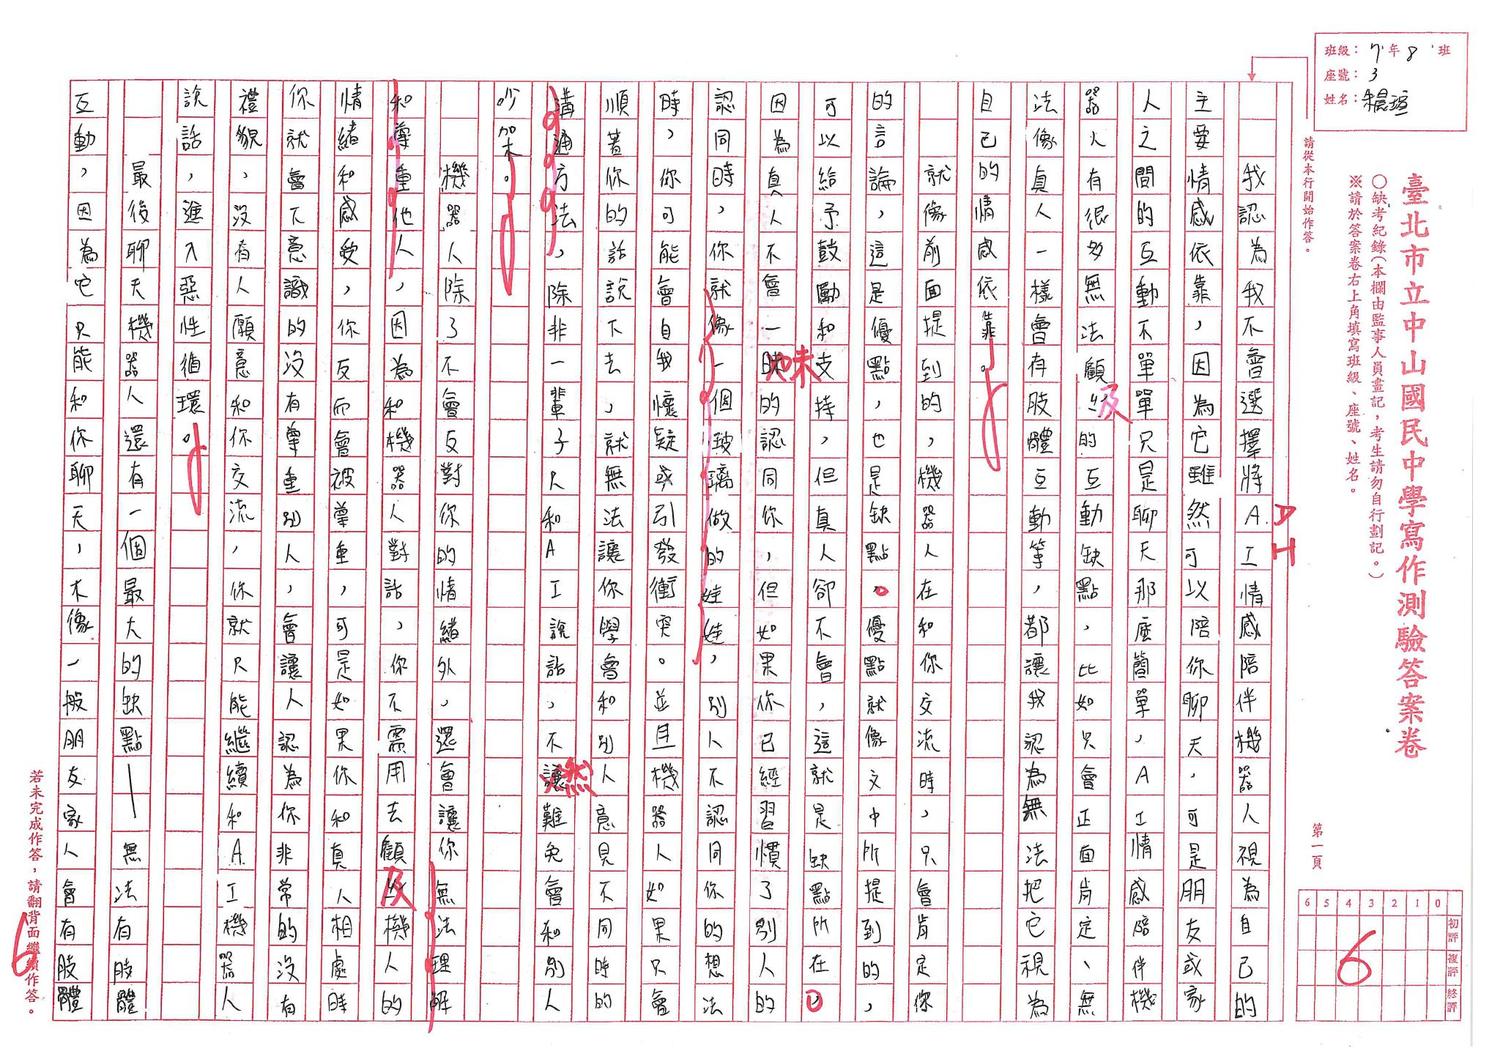 班級：7年8班
座號：3
姓名：
臺北市立中山國民中學寫作測驗答案卷
〇缺考紀錄(本欄由監事人員畫記，考生請勿自行劃記。)
※請於答案卷右上角填寫班級、座號、姓名。
請從本行開始作答。
第一頁
6 5 4 3 2 1 0
初評
複評
終評
6
我認為我不會選擇將A.I情感陪伴機器人視為自己的
主要情感依靠，因為它雖然可以陪你聊天，可是朋友或家
人之間的互動不單單只是聊天那麼簡單，AI情感陪伴機
器人有很多無法顧及的互動缺點，比如只會正面肯定、無
法像真人一樣會有肢體互動等，都讓我認為無法把它視為
自己的情感依靠。
就像前面提到的，機器人在和你交流時，只會肯定你
的言論，這是優點，也是缺點。優點就像文中所提到的，
可以給予鼓勵和支持，但真人卻不會，這就是缺點所在，
因為真人不會一味的認同你，但如果你已經習慣了別人的
認同時，你就像一個玻璃做的娃娃，別人不認同你的想法
時，你可能會自我懷疑或引發衝突。並且機器人如果只會
順著你的話說下去，就無法讓你學會和別人意見不同時的
溝通方法，除非一輩子只和AI說話，不然難免會和別人
吵架。
機器人除了不會反對你的情緒外，還會讓你無法理解
和尊重他人，因為和機器人對話，你不需用去顧及機人的
情緒和感受，你反而會被尊重，可是如果你和真人相處時
你就會下意識的沒有尊重別人，會讓人認為你非常的沒有
禮貌，沒有人願意和你交流，你就只能繼續和A.I機器人
說話，進入惡性循環。
最後聊天機器人還有一個最大的缺點—無法有肢體
互動，因為它只能和你聊天，不像一般朋友家人會有肢體
若未完成作答，請翻背面繼續作答。
6